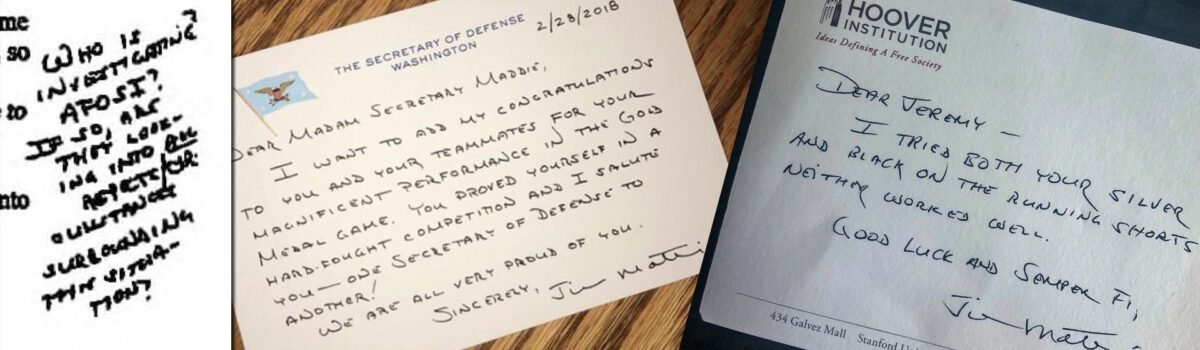 me
so
to
nto
WHO IS
INVESTIGATING
AFOSI?
IF SO, ARE
THEY LOOK-
ING INTO ALL
ASPECTS/CIR-
CUMSTANCES
SURROUNDING
THIS SITUA-
TION?
THE SECRETARY OF DEFENSE
WASHINGTON
2/28/2018
DEAR MADAM SECRETARY MADDIE,
I WANT TO ADD MY CONGRATULATIONS
TO YOU AND YOUR TEAMMATES FOR YOUR
MAGNIFICENT PERFORMANCE IN THE GOLD
MEDAL GAME. YOU PROVED YOURSELF IN A
HARD-FOUGHT COMPETITION AND I SALUTE
YOU—ONE SECRETARY OF DEFENSE TO
ANOTHER!
WE ARE ALL VERY PROUD OF YOU.
SINCERELY, Jim Matti
HOOVER
INSTITUTION
Ideas Defining A Free Society
DEAR JEREMY —
I TRIED BOTH YOUR SILVER
AND BLACK ON THE RUNNING SHORTS
NEITHER WORKED WELL.
GOOD LUCK AND SEMPER FI,
Jim Matti
434 Galvez Mall Stanford Uni